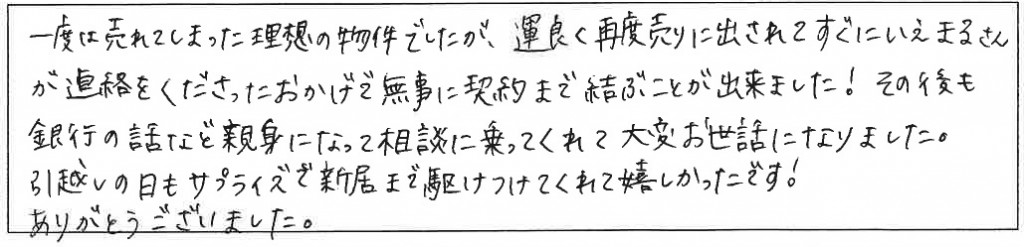 一度は売れてしまった理想の物件でしたが、運良く再度売りに出されてすぐにいえまるさん
が連絡をくださったおかげで無事に契約まで結ぶことが出来ました！その後も
銀行の話など親身になって相談に乗ってくれて大変お世話になりました。
引越しの日もサプライズで新居まで駆けつけてくれて嬉しかったです！
ありがとうございました。